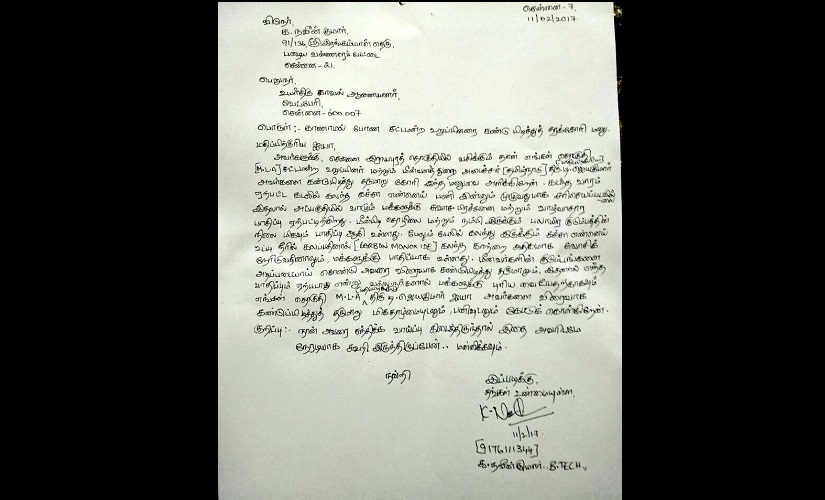 சென்னை - 7,
11/02/2017
விடுநர்,
க. நவீன் குமார்,
91/134, ஸ்ரீ அரங்கம்மாள் தெரு,
பழைய வண்ணாரப் பேட்டை
சென்னை - 21.
பெறுநர்,
உயர்திரு காவல் ஆணையாளர்,
வேப்பேரி,
சென்னை - 600 007
பொருள் :- காணாமல் போன சட்டமன்ற உறுப்பினரை கண்டு பிடித்துத் தரக்கோரி மனு.
மதிப்பிற்குரிய ஐயா,
அவர்களுக்கு, சென்னை இராயபுரத் தொகுதியில் வசிக்கும் நான் எங்கள் தொகுதி
[M.L.A] சட்டமன்ற உறுப்பினர் மற்றும் மீன்வளத்துறை அமைச்சர் [தமிழ்நாடு] திரு.டி.ஜெயகுமார்
அவர்களை கண்டுபிடித்து தருமாறு கோரி இந்த மனுவை அளிக்கிறேன். கடந்த வாரம்
ஏற்பட்ட கடலில் கலந்த கச்சா எண்ணெய் பணி இன்னும் முழுவதுமாக
இதனால் அப்பகுதியில் வாழும் மக்களுக்கு சுவாச பிரச்சனை மற்றும் வாழ்வாதார
பாதிப்பு ஏற்பட்டிருக்கிறது. மீன்பிடி தொழிலை மற்றும் நம்பி இருக்கும் பலாயிர குடும்பத்தின்
நிலை மிகவும் பாதிப்பு ஆகி உள்ளது. மேலும் கடலில் கலந்து இருக்கும் கச்சா எண்ணெய்
உப்பு நீரில் கலப்பதினால் [CARBON MONOXIDE] கலந்த காற்றை அதிகமாக சுவாசிக்க
நேரிடுவதினாலும், மக்களுக்கு பாதிப்பாக உள்ளது. மீனவர்களின் குடும்பங்களை
அடிப்படையாய் கொண்டு அவரை விரைவாக கண்டுபிடித்து தருமாறும், இதனால் எந்த
பாதிப்பும் ஏற்படாது என்று மக்களுக்கு புரிய வைப்பதற்காகவும்
எங்கள் தொகுதி M.L.A திரு டி.ஜெயகுமார் ஐயா அவர்களை விரைவாக
கண்டுப்பிடித்துத் தருமாறு மிகதாழ்மையுடனும், பணிவுடனும் கேட்டுக் கொள்கிறேன்.
குறிப்பு :- நான் அவரை சந்திக்க வாய்ப்பு கிடைத்திருந்தால் இதை அவரிடமே
நேரடியாக கூறி இருந்திருப்பேன்.. மன்னிக்கவும்.
நன்றி
இப்படிக்கு,
தங்கள் உண்மையுள்ள,
11/2/17
[9176111344]
க. நவீன்குமார். B.TECH.,